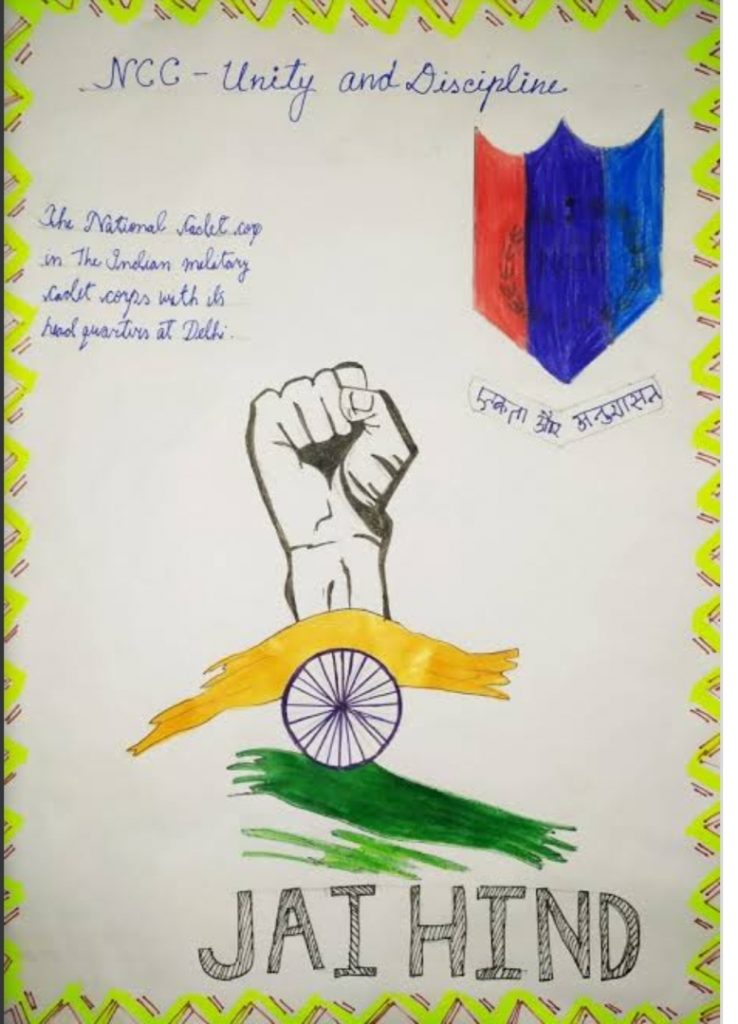 NCC - Unity and Discipline
The National Cadet corp
in The Indian military
Cadet corps with its
head quarters at Delhi.
एकता और अनुशासन
JAI HIND